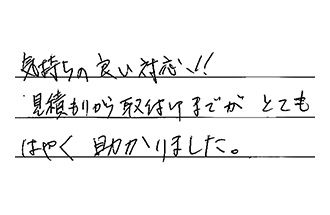 気持ちの良い対応!!
見積もりから取付けまでが とても
はやく 助かりました。